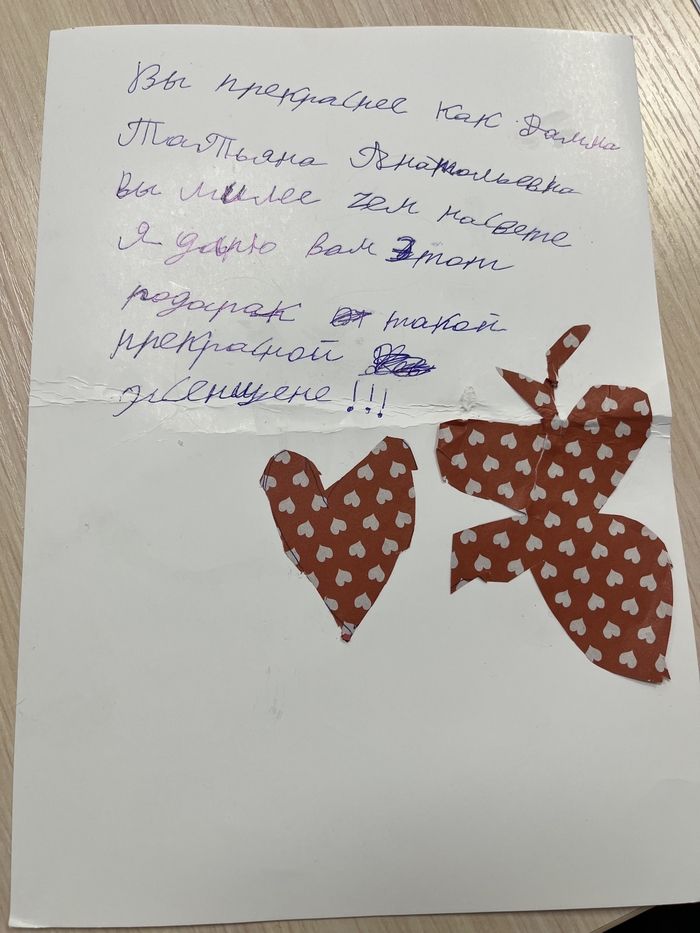 Вы прекраснее как Домна
ТаТьяна Анатольевна
Вы милее чем насвете
Я дарю вам этот
подарак такой
прекрасной
женщене !!!